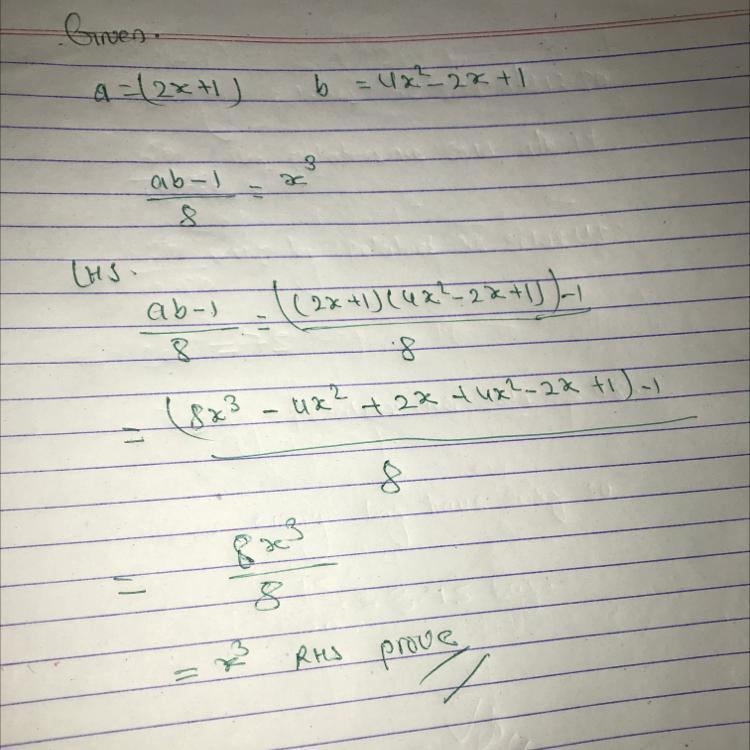 Given.
a = (2x+1) b = 4x² - 2x + 1
(ab-1)/8 = x³
LHS.
(ab-1)/8 = ((2x+1)(4x²-2x+1))-1/8
= (8x³ - 4x² + 2x + 4x² - 2x + 1) - 1/8
= 8x³/8
= x³ RHS prove